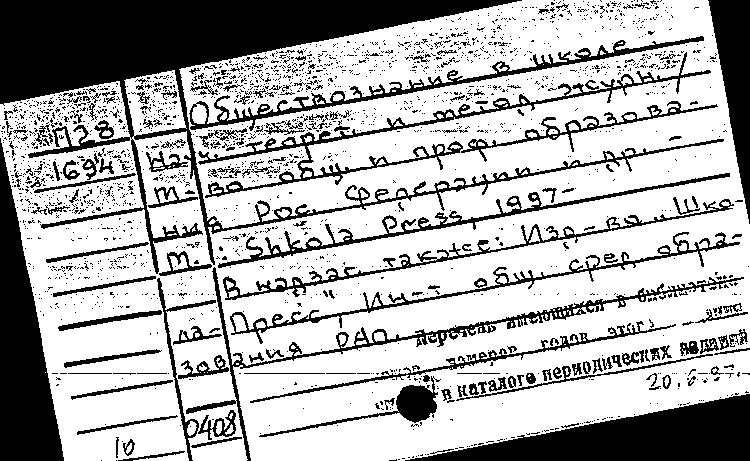 Обществознание в школе :
П28
1694
Науч.-теорет. и метод. журн. /
М-во общ. и проф. образова-
ния Рос. Федерации и др. -
М. : Shkola Press, 1997-
В надзаг. также: Изд-во „Шко-
ла-Пресс", Ин-т общ. сред. обра-
зования РАО.
Перечень имеющихся в библиотеке
номеров, годов этого
в каталоге периодических изданий
20.6.97.
0408
10